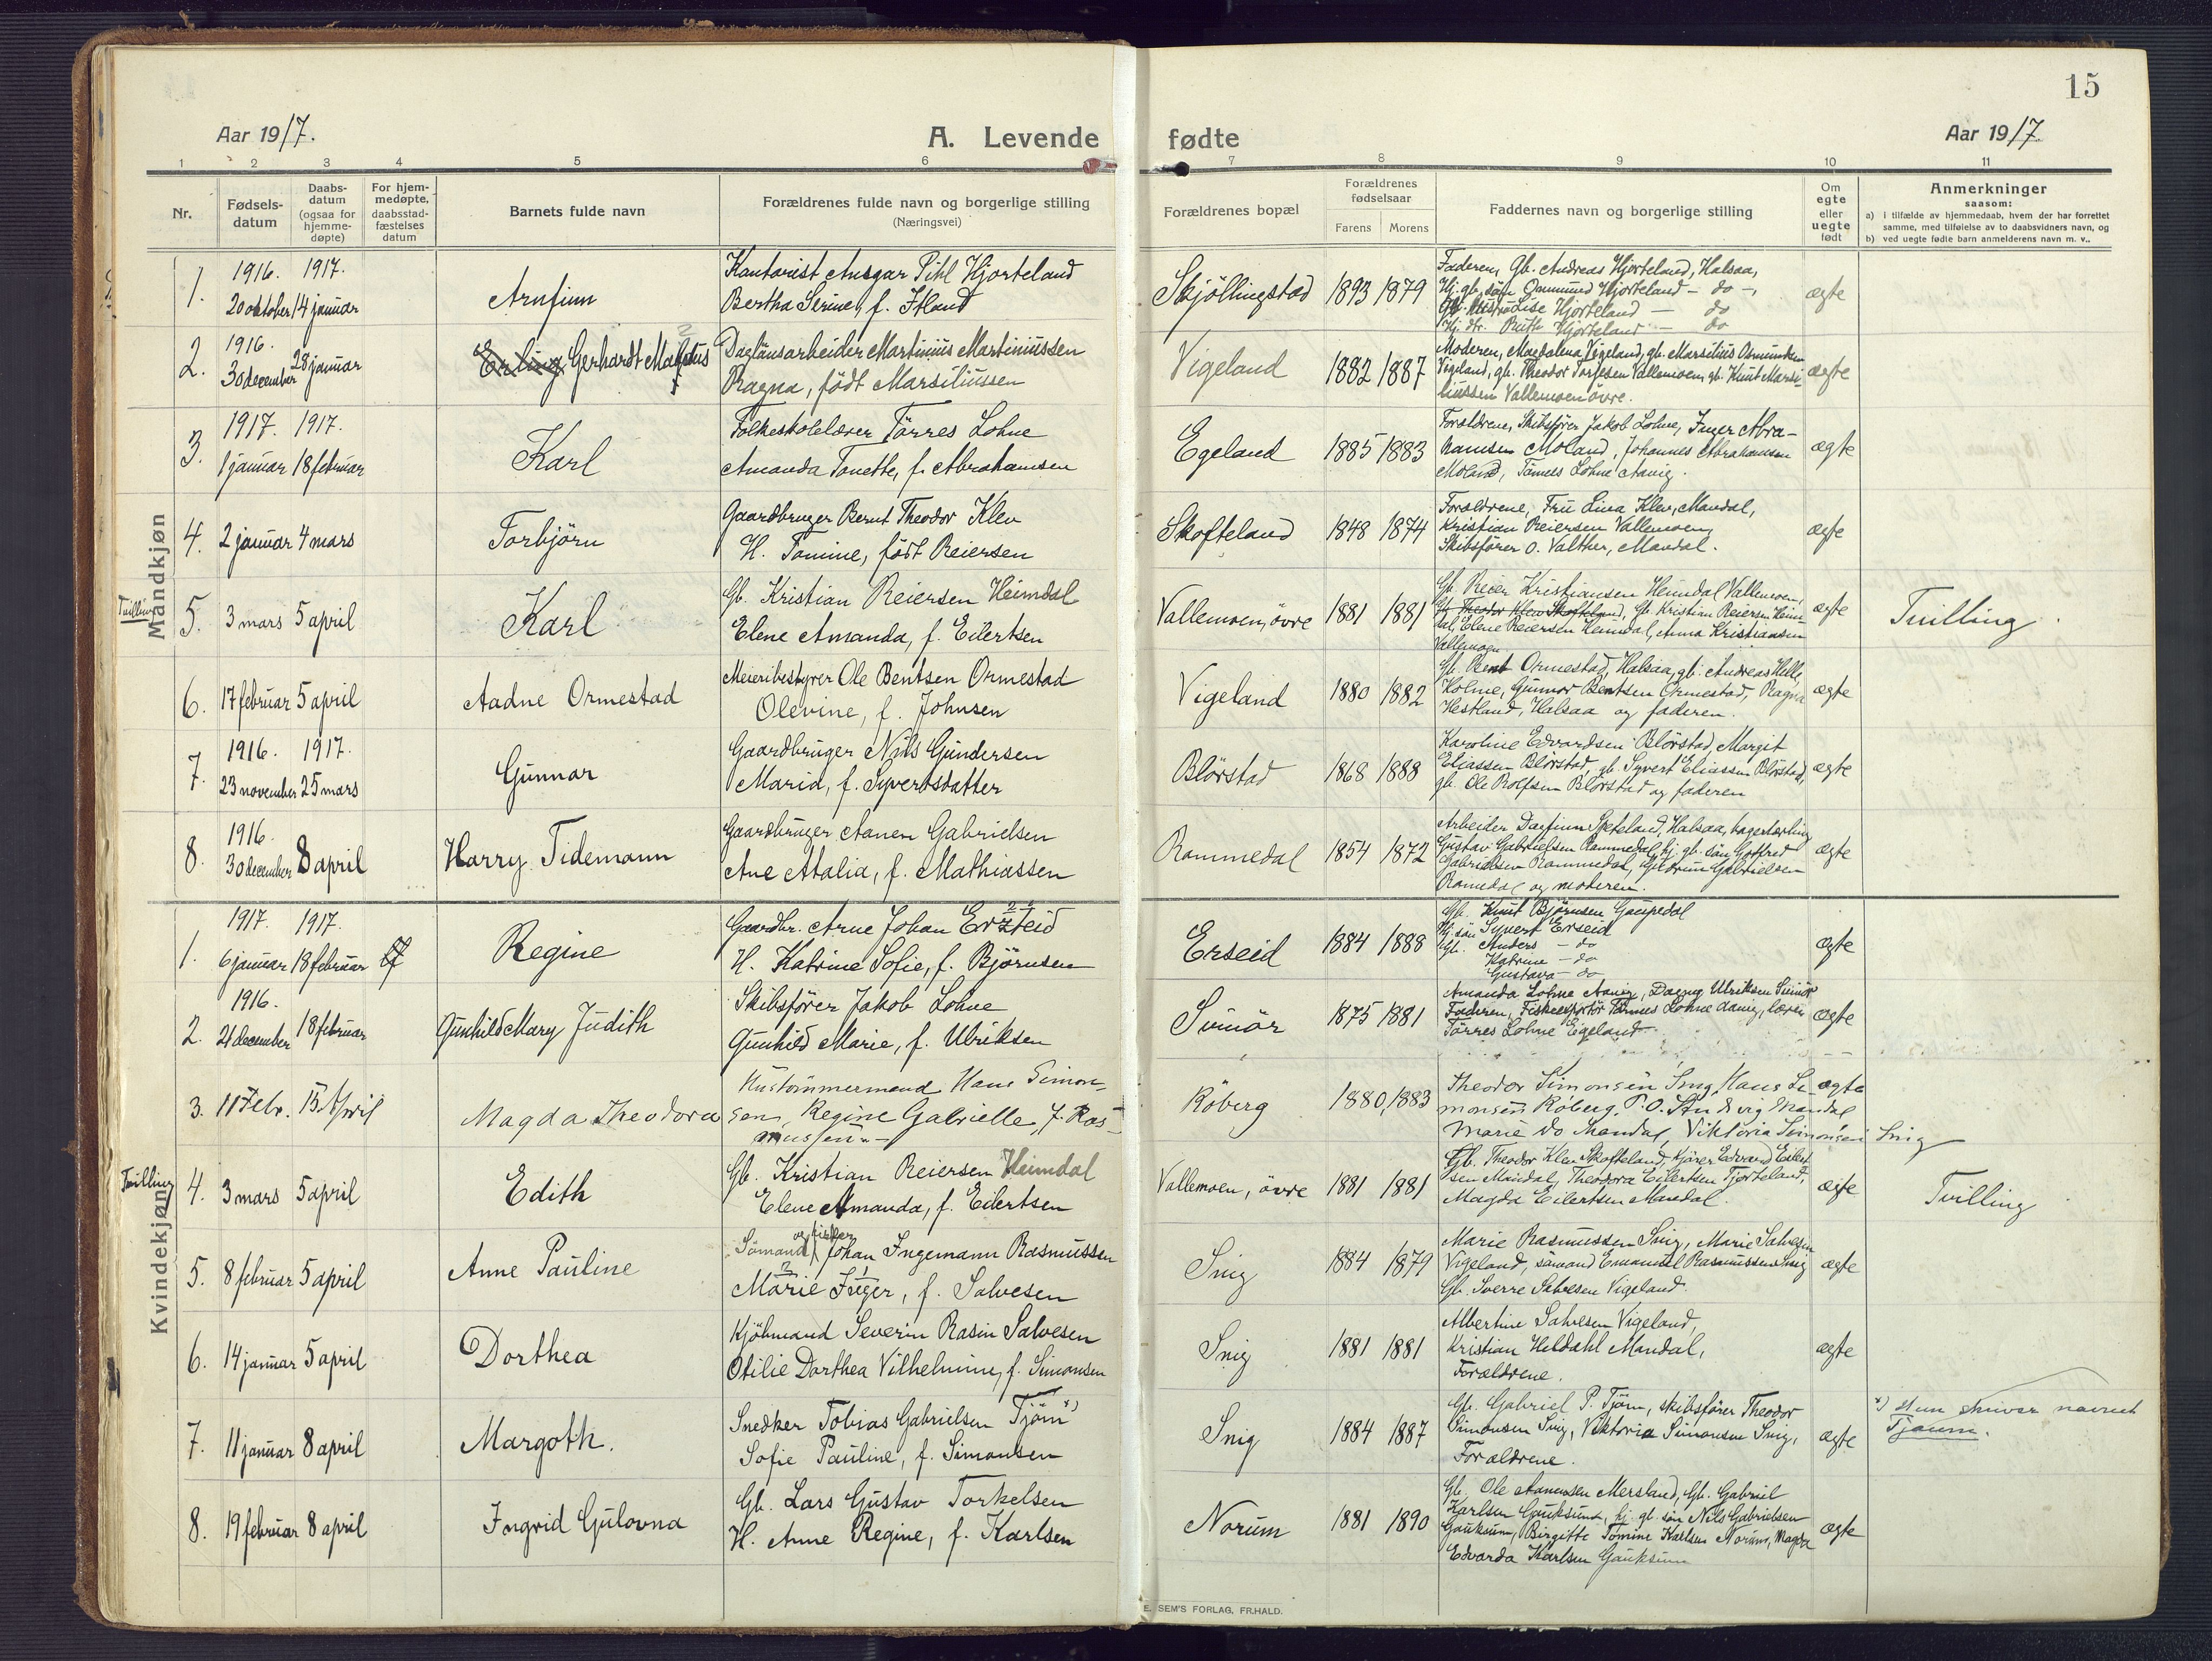 15
Aar 1917.
A. Levende fødte
Aar 1917
1 2 3 4 5 6 7 8 9 10 11
Nr.
Fødsels-
datum
Daabs-
datum
(ogsaa for
hjemme-
døpte)
For hjem-
medøpte,
daabsstad-
fæstelses
datum
Barnets fulde navn
Forældrenes fulde navn og borgerlige stilling
(Næringsvei)
Forældrenes bopæl
Forældrenes
fødselsaar
Farens Morens
Faddernes navn og borgerlige stilling
Om
egte
eller
uegte
født
Anmerkninger
saasom:
a) i tilfælde av hjemmedaab, hvem der har forrettet
samme, med tilføielse av to daabsvidners navn, og
b) ved uegte fødte barn anmelderens navn m. v..
Mandkjøn
1. 1916. 20 oktober 1917. 14 januar
Arnfinn
Kontorist Ansgar Pihl Hjorteland
Bertha Serine, f.
Skjöllingstad 1893 1879
Faderen, Gb. Andreas Hjorteland, Halsaa,
Hj. gb. sön Hjorteland - do -,
Lise Hjorteland - do
Hj. dtr. Ruth Hjorteland - do
ægte
2. 1916. 30 december 28 januar
Erling Gerhardt
Daglönsarbeider Martinius Martiniussen
Ragna, födt Marsiliussen
Vigeland 1882 1887
Moderen, Magdalena Vigeland, gb. Marsilius Osmundsen
Vigeland, gb. Theodor Torjesen Vallemoen, gb. Knut Marsi-
liussen Vallemoen övre.
ægte
3. 1917. 1 januar 1917. 18 februar
Karl
Folkeskolelærer Törres Lohne
Amanda Tonette, f. Abrahamsen
Egeland 1885 1883
Forældrene, Skibsfører Jakob Lohne, Inger Abra-
hamsen Moland, Johannes Abrahamsen
Moland, Tönnes Lohne Aavig.
ægte
4. 2 januar 4 mars
Torbjörn
Gaardbruger Bernt Theodor Klev
H. Tomine, födt Reiersen
Skofteland 1848 1874
Forældrene, Fru Lina Klev, Mandal,
Kristian Reiersen Vallemoen,
Skibsfører O. Valther, Mandal.
ægte
Tvilling
5. 3 mars 5 april
Karl
Gb. Kristian Reiersen Heimdal
Elene Amanda, f. Eilertsen
Vallemoen, övre 1881 1881
Gb. Reier Kristiansen Heimdal Vallemoen,
Gb. Theodor Klev Skofteland, Gb. Kristian Reiersen Heim-
dal, Elene Reiersen Heimdal, Anna Kristiansen
Vallemoen
ægte
Tvilling.
6. 17 februar 5 april
Aadne Ormestad
Meieribestyrer Ole Bentsen Ormestad
Olevine, f. Johnsen
Vigeland 1880 1882
Gb. Bent Ormestad, Halsaa, gb. Andreas Helle,
Holme, Gunnar Bentsen Ormestad, Ragna
Hestland, Halsaa og faderen.
ægte
7. 1916. 23 november 1917. 25 mars
Gunnar
Gaardbruger Nils Gundersen
Maria, f. Syvertsdatter
Blörstad 1868 1888
Karoline Edvardsen Blörstad, Margit
Eliassen Blörstad, gb. Syvert Eliassen Blörstad,
gb. Ole Rolfsen Blörstad og faderen
ægte
8. 1916. 30 december 8 april
Harry Tidemann
Gaardbruger Aanen Gabrielsen
Ane Atalia, f. Mathiassen
Rommedal 1854 1872
Arbeider Dagfinn Spteland, Halsaa, bagerlærling
Gustav Gabrielsen Rammedal, hj. gb. sön Gotfred
Gabrielsen Rammedal, Gudrun Gabrielsen
Ramedal og moderen.
ægte
Kvindekjøn
1. 1917. 6 januar 1917. 18 februar
Regine
Gaardbr. Arne Johan
H. Katrine Sofie, f. Björnsen
Erseid 1884 1888
Gb. Knut Björnsen Gaupedal
Hj. sön Syvert Erseid
Gb. Anders - do
Katrine - do
Gustava - do
ægte
2. 1916. 21 december 18 februar
Gunhild Mary Judith
Skibsfører Jakob Lohne
Gunhild Marie, f. Ulriksen
Svinör 1875 1881
Amanda Lohne Aavig, Dagny Ulriksen Svinör
Faderen, Fiskeexportör Tönnes Lohne Aavig, lærer
Törres Lohne Egeland
ægte
3. 11 Febr. 15 April
Magda Theodora
Hustømmermand Hans Simon-
sen, Regine Gabrielle, f. Ras-
mussen
Röberg 1880, 1883
Theodor Simonsen Snig, Hans Si-
monsen Röberg, P. O. Mandal
Marie do Mandal, Viktoria Simonsen Snig
ægte
Tvilling
4. 3 mars 5 april
Edith
Gb. Kristian Reiersen Heimdal
Elene Amanda, f. Eilertsen
Vallemoen, övre 1881 1881
Gb. Theodor Klev Skofteland, Kjører Edvard Eilert-
sen Mandal, Theodora Eilertsen Tjorteland,
Magda Eilertsen Mandal.
ægte
Tvilling
5. 8 februar 5 april
Anne Pauline
Sömand og fisker Johan Ingemann Rasmussen
Marie Inger, f. Salvesen
Snig 1884 1879
Marie Rasmussen Snig, Marie Salvesen
Vigeland, sömand Emanuel Rasmussen Snig
Gb. Sverre Salvesen Vigeland.
ægte
6. 14 januar 5 april
Dorthea
Kjöbmand Severin Rasin Salvesen
Otilie Dorthea Vilhelmine, f. Simonsen
Snig 1881 1881
Albertine Salvesen Vigeland,
Kristian Heldahl Mandal,
Forældrene.
ægte
7. 11 januar 8 april
Margoth.
Snedker Tobias Gabrielsen Tjöm x)
Sofie Pauline, f. Simonsen
Snig 1884 1887
Gb. Gabriel P. Tjöm, skibsfører Theodor
Simonsen Snig, Viktoria Simonsen Snig,
Forældrene.
ægte
x) skriver navnet
Tjaum.
8. 19 februar 8 april
Ingrid Gulovna
Gb. Lars Gustav Torkelsen
H. Anne Regine, f. Karlsen
Norum 1881 1890
Gb. Ole Aanensen Mersland, Gb. Gabriel
Karlsen Gauksum, hj. gb. sön Nils Gabrielsen
Gauksum, Birgitte Tomine Karlsen Norum, Magda
Edvarda Karlsen Gauksum
ægte
E. SEM'S FORLAG, FR.HALD.